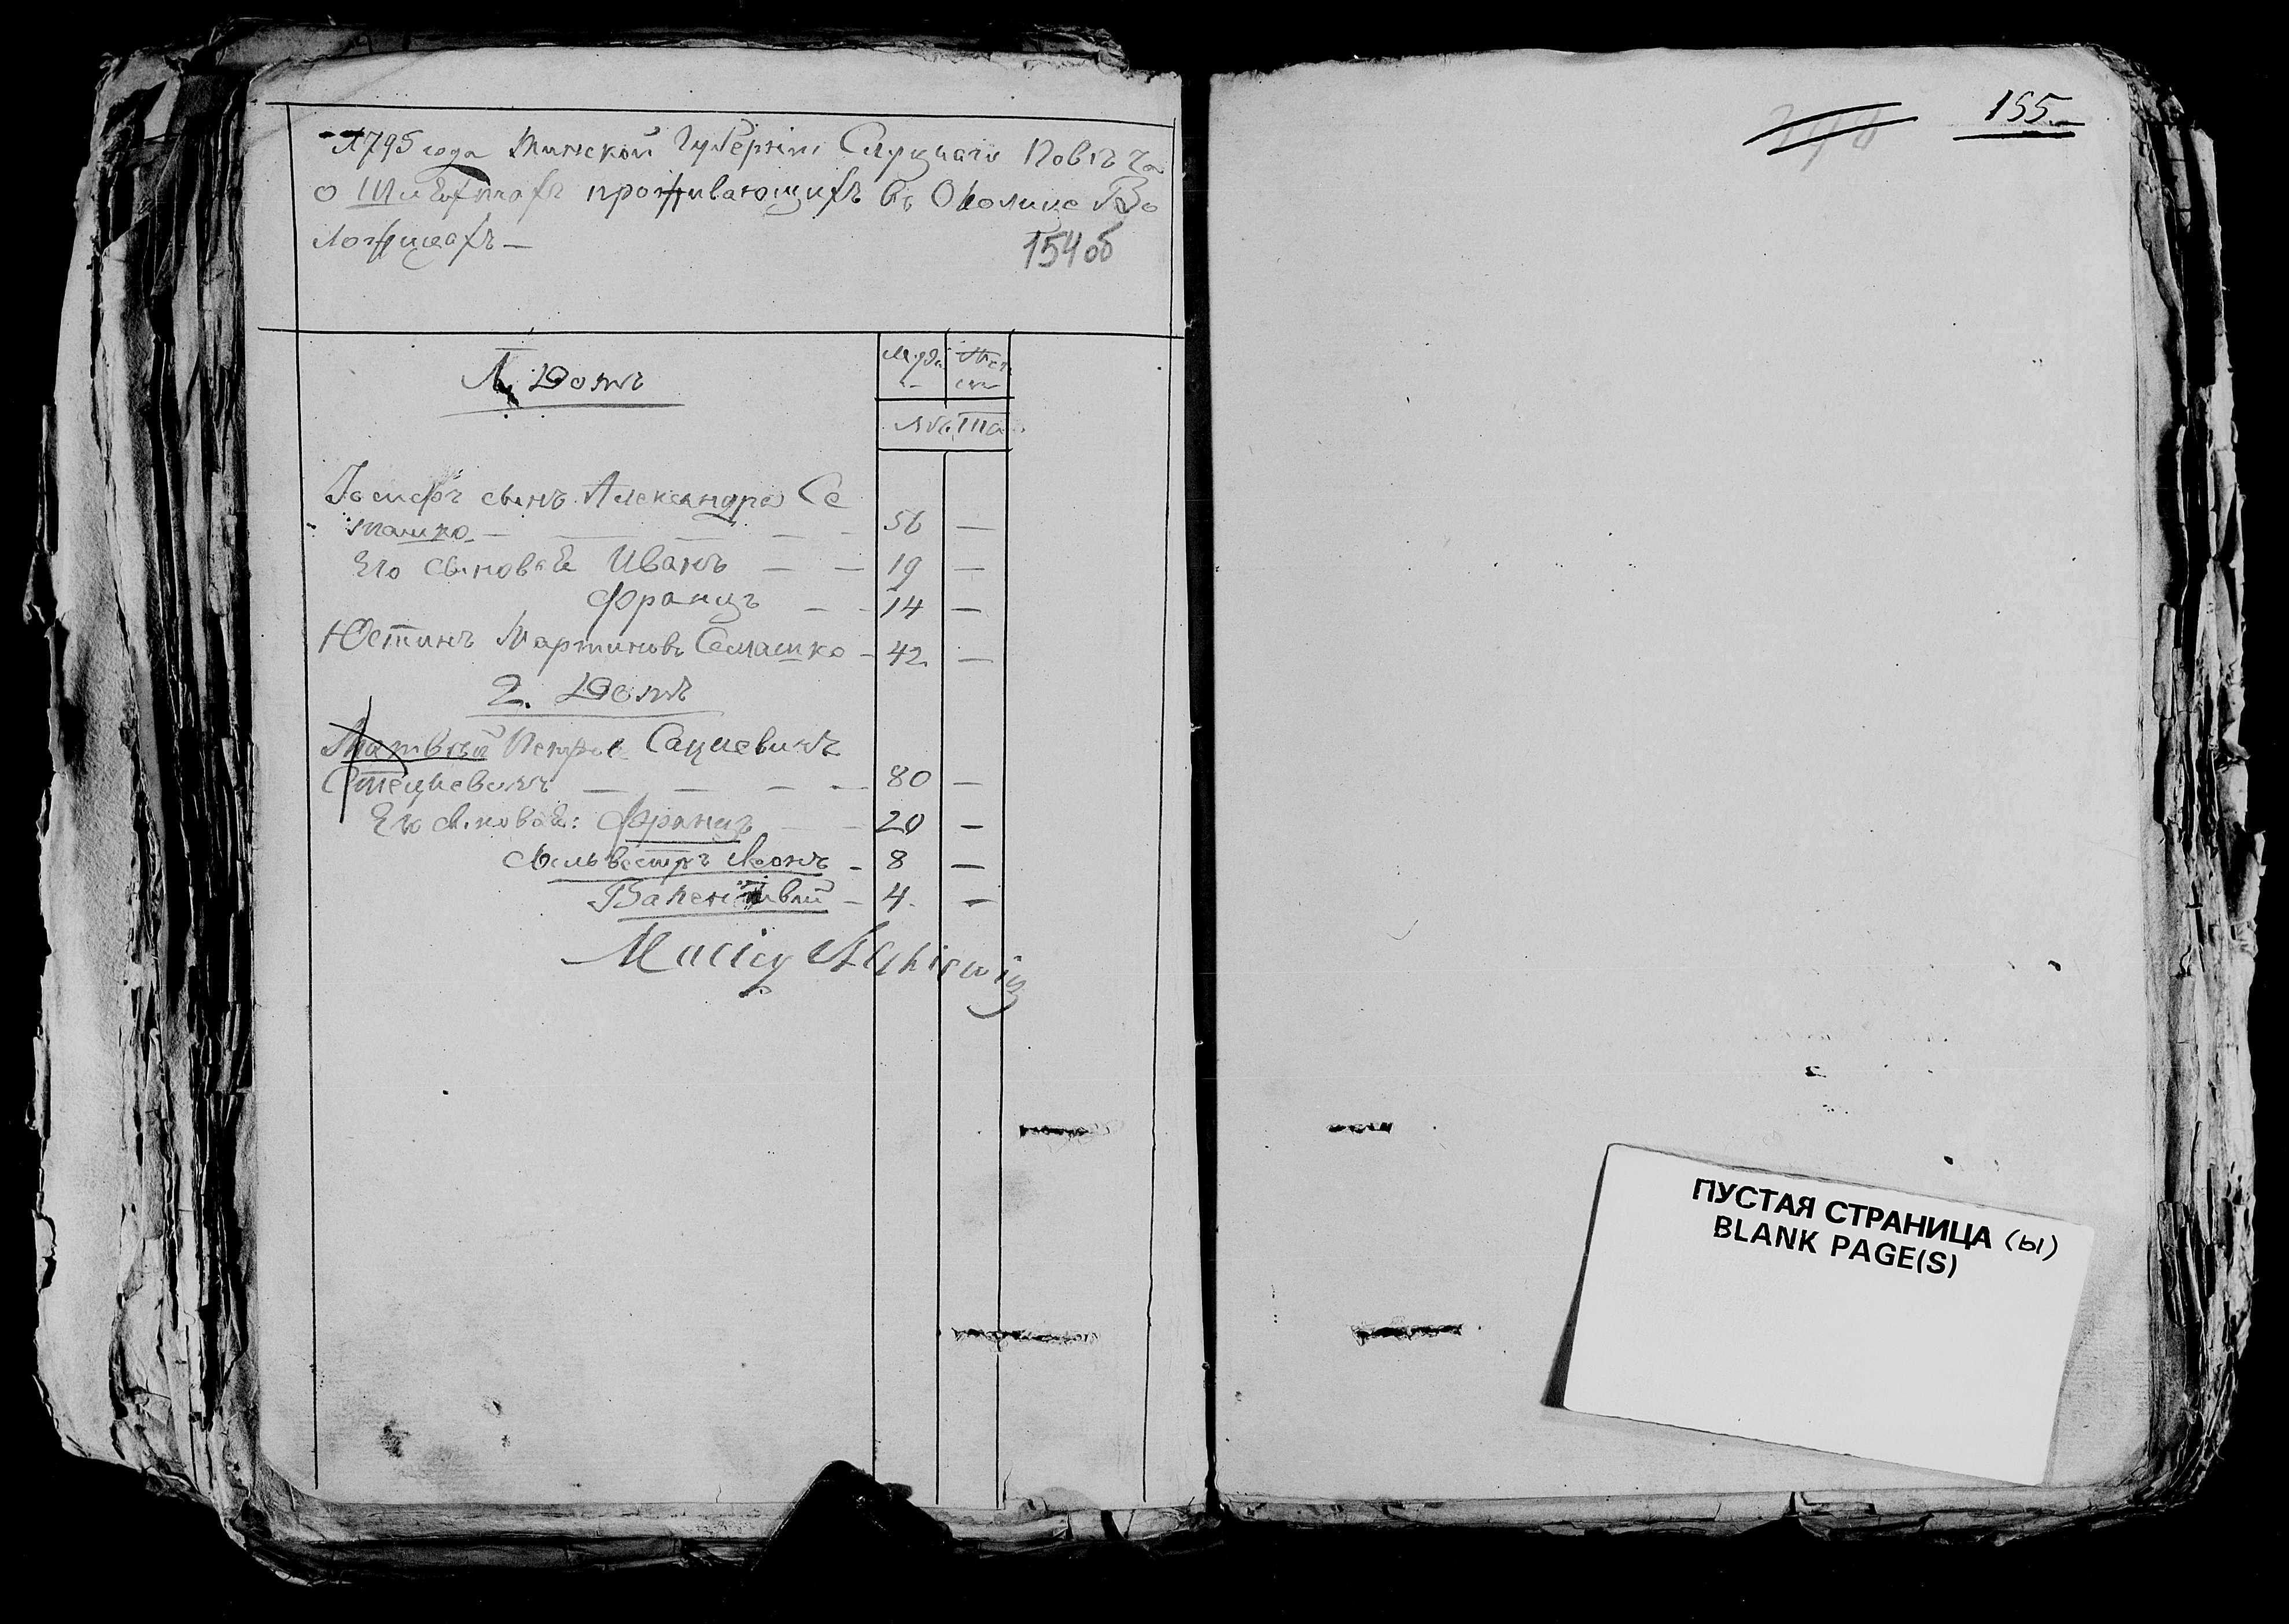 1795 года Минской Губернiи Слуцкаго Повѣта
о Шляхтахъ проживающихъ въ Околице Во
ложинахъ —
154 об
1. Домъ
Мужс. Женс.
Лѣта
Iосифъ сынъ Александра Се
машко — 56 —
Его сыновья Иванъ — — 19 —
Францъ — 14 —
Юстинъ Мартиновъ Семашко — 42 —
2. Домъ
Матвѣй Петровъ Сацкевичъ
Стецкевичъ — — — — 80 —
Его сыновья: Францъ — — 20 —
Сильвестръ Леонъ — 8 —
Валентый — 4 —
Maciey
155
ПУСТАЯ СТРАНИЦА (Ы)
BLANK PAGE(S)